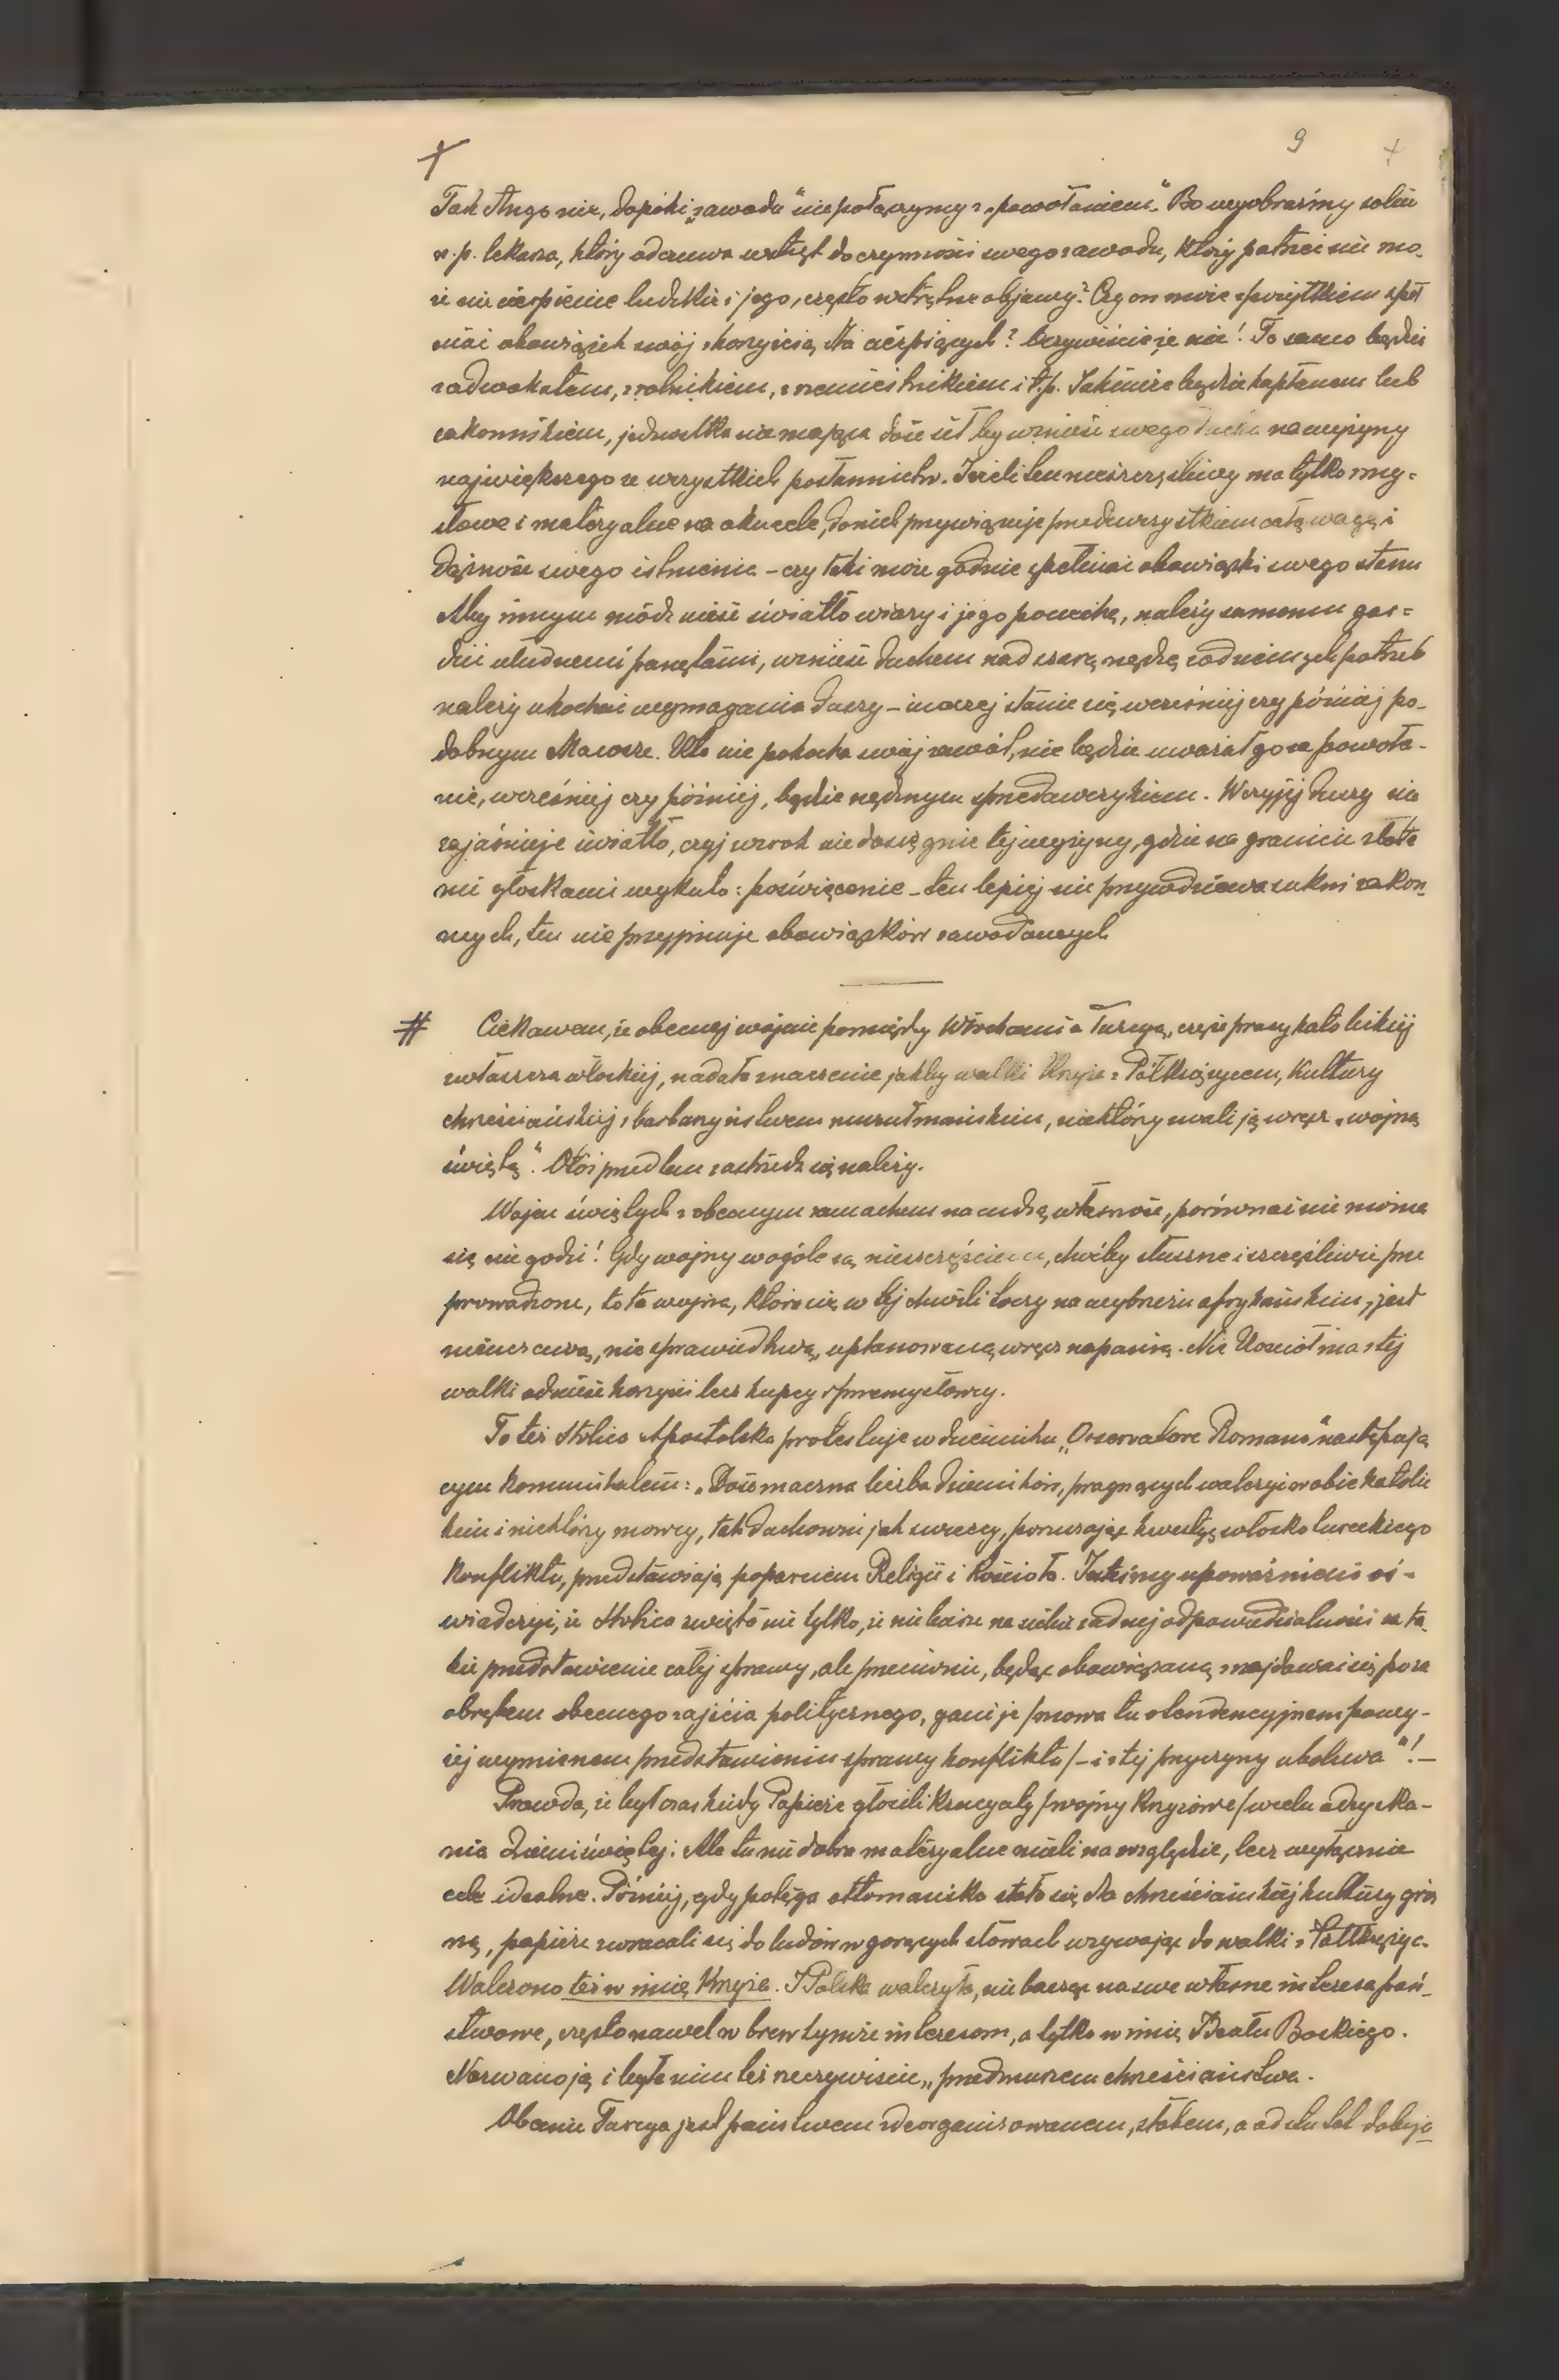 9
Tak długo nie, dopóki „zawodu" nie połączymy z „powołaniem". Bo wyobraźmy sobie
n.p. lekarza, który odczuwa wstręt do czynności swego zawodu, który patrzeć nie mo-
że na cierpienie ludzkie i jego, często wstrętne objawy? Czy on może z pożytkiem speł
niać obowiązek swój z korzyścią dla cierpiących? Oczywiście że nie! To samo będzie
z adwokatem, z rolnikiem, z rzemieślnikiem i t.p. Jakimże będzie kapłanem lub
zakonnikiem, jednostka nie mająca dość sił by wznieść swego ducha na wyżyny
największego ze wszystkich posłannictw. Jeżeli ten nieszczęśliwy ma tylko zmy-
słowe i materyalne na oku cele, do nich przywiązuje przedewszystkiem całą wagę i
dążność swego istnienia – czy taki może godnie spełniać obowiązki swego stanu
Aby innym módz nieść światło wiary i jego pociechę, należy samemu gar-
dzić ułudnemi ponętami, wznieść duchem nad szarą nędzę codziennych potrzeb
należy ukochać wymagania duszy – inaczej stanie się wcześniej czy później po-
dobnym Macosze. Kto nie pokocha swój zawód, nie będzie uważał go za powoła-
nie, wcześniej czy później, będzie nędznym sprzedawczykiem. W czyjej duszy nie
zajaśnieje światło, czyj wzrok nie dosięgnie tej wyżyny, gdzie na granicie złote
mi głoskami wykuto: poświęcenie – ten lepiej nie przywdziewa sukni zakon-
nych, ten nie przyjmuje obowiązków zawodowych
# Ciekawem, że obecnej wojnie pomiędzy Włochami a Turcyą, część prasy katolickiej
zwłaszcza włoskiej, nadała znaczenie jakby walki Krzyża z Półksiężycem, Kultury
chrześciańskiej z barbarzyństwem muzułmańskiem, niektórzy zwali ją wręcz „wojną
świętą". Otóż przed tem zastrzedz się należy.
Wojen świętych z obecnym zamachem na cudzą własność, porównać nie można
się nie godzi! Gdy wojny wogóle są nieszczęściem, choćby słuszne i szczęśliwie prze
prowadzone, to ta wojna, która się w tej chwili toczy na wybrzeżu afrykańskiem, jest
nieuczciwą, niesprawiedliwą, uplanowaną wręcz napaścią. Nie Kościół ma z tej
walki odnieść korzyści lecz kupcy i przemysłowcy.
To też Stolica Apostolska protestuje w dzienniku „Osservatore Romano" następują
cym komunikatem: „Dość znaczna liczba dzienników, pragnących walczyć w obozie katolic
kim i niektórzy mowcy, tak duchowni jak swieccy, poruszając kwestyę włosko tureckiego
konfliktu, przedstawiają poparciem Religii i Kościoła. Jesteśmy upoważnieni oś-
wiadczyć, że Stolica święta nie tylko, że nie bierze na siebie żadnej odpowiedzialności za ta-
kie przedstawienie całej sprawy, ale przeciwnie, będąc obowiązaną znajdować się poza
obrębem obecnego zajścia politycznego, gani je /mowa tu o tendencyjnem powy-
żej wymienionem przedstawieniu sprawy konfliktu/ – i z tej przyczyny ubolewa"! –
Prawda, że był czas kiedy Papieże głosili Krucyaty /wojny Krzyżowe/ w celu odzyska-
nia Ziemi świętej. Ale tu nie dobra materyalne mieli na względzie, lecz wyłącznie
cele idealne. Później, gdy potęga ottomańska stała się dla chrześciańskiej kultury groź
ną, papieże zwracali się do ludów w gorących słowach wzywając do walki z Półksiężyc.
Walczono też w imię Krzyża. I Polska walczyła, nie bacząc na swe własne interesa pań-
stwowe, często nawet w brew tymże interesom, a tylko w imię Ideału Boskiego.
Nazwano ją i była nim też rzeczywiście „przedmurzem chrześciaństwa.
Obecnie Turcya jest państwem zdeorganizowanem, słabem, a od stu lat dobija